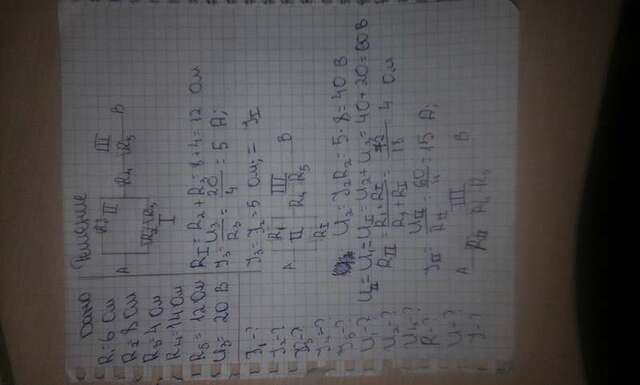 Дано
R₁=6 Ом
R₂=8 Ом
R₃=4 Ом
R₄=14 Ом
R₅=12 Ом
U₃=20 В
I₁-?
I₂-?
I₃-?
I₄-?
I₅-?
U-?
U₂-?
U₄-?
R-?
U₁-?
I-?
Решение
A
II
I
R₂ R₃
III
R₄ R₅
B
R_I=R₂+R₃=8+4=12 Ом
I₃=U₃/R₃=20/4=5 А;
I₃=I₂=5 Ом;=I_I
A
R₁
II
R_I
III
R₄ R₅
B
U₂=I₂R₂=5·8=40 В
U_II=U₁=U_I=U₂+U₃=40+20=60 В
R_II=
4 Ом
18
I_II=U_II/R_II=60/4=15 А;
A
R_II
III
R₄ R₅
B